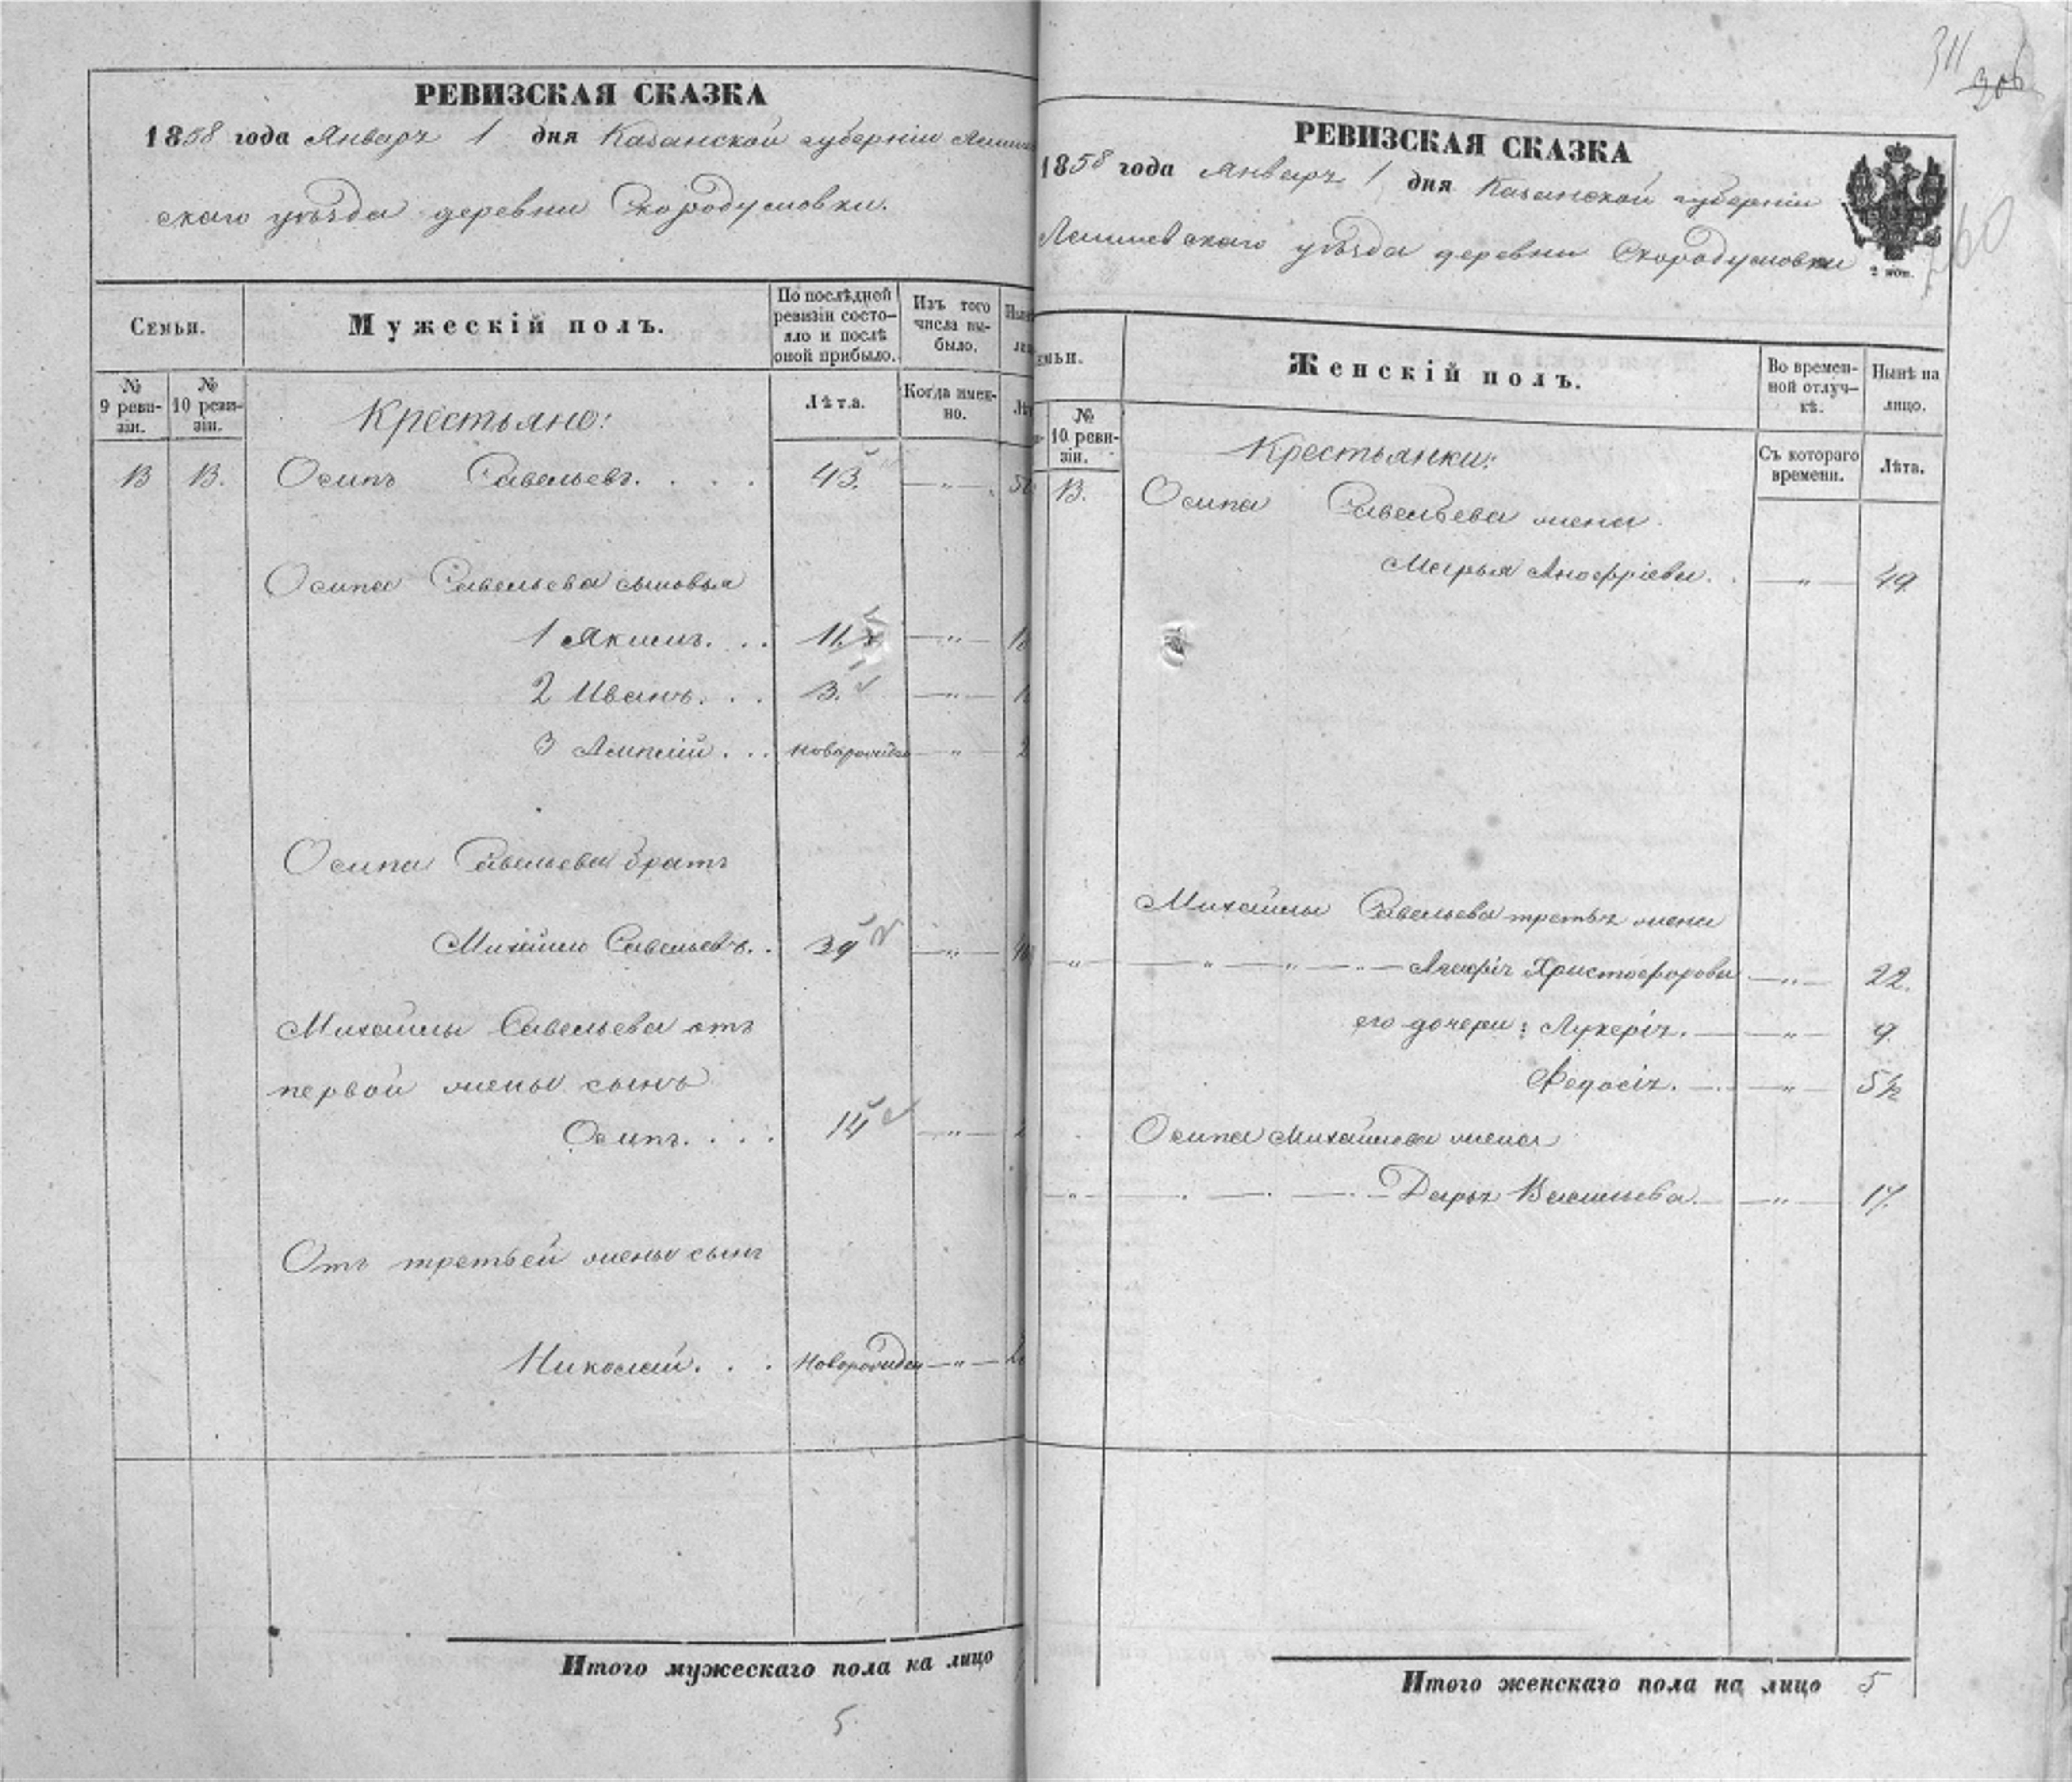 РЕВИЗСКАЯ СКАЗКА
1858 года Январь 1 дня Казанской губернiи
скаго уѣзда деревни Скородумовки.
Семьи.
Мужескiй полъ.
По послѣдней ревизiи состо-
яло и послѣ
оной прибыло.
Изъ того
числа вы-
было.
№
9 реви-
зiи.
№
10 реви-
зiи.
Крестьяне:
Лѣта.
Когда имен-
но.
13 13. Осипъ Савельевъ. . . . 43. — „ —
Осипа Савельева сыновья
1 Якимъ. . . 11. — „ —
2 Иванъ. . . 3. — „ —
3 . . . новорожден — „ —
Осипа Савельева братъ
Михайло Савельевъ. . 39 — „ —
Михайлы Савельева отъ
первой жены сынъ
Осипъ. . . . 14 — „ —
Отъ третьей жены сынъ
Николай. . . Новорожден — „ —
Итого мужескаго пола на лицо
5
311
306
РЕВИЗСКАЯ СКАЗКА
1858 года Январь 1 дня Казанской губернiи
Лаишевскаго уѣзда деревни Скородумовки
2 коп.
Женскiй полъ.
Во времен-
ной отлуч-
кѣ.
Нынѣ на
лицо.
№
10 реви-
зiи.
Крестьянки:
Съ котораго
времени.
Лѣта.
13. Осипа Савельева жена
Марья Аноффрiева. . — „ — 49
Михайлы Савельева третья жена
— „ — Христофорова — „ — 22.
его дочери: Лукерiя. — „ — 9
Федосiя. — „ — 5½
Осипа Михайлова жена
Дарья Васильева. — „ — 17.
Итого женскаго пола на лицо 5